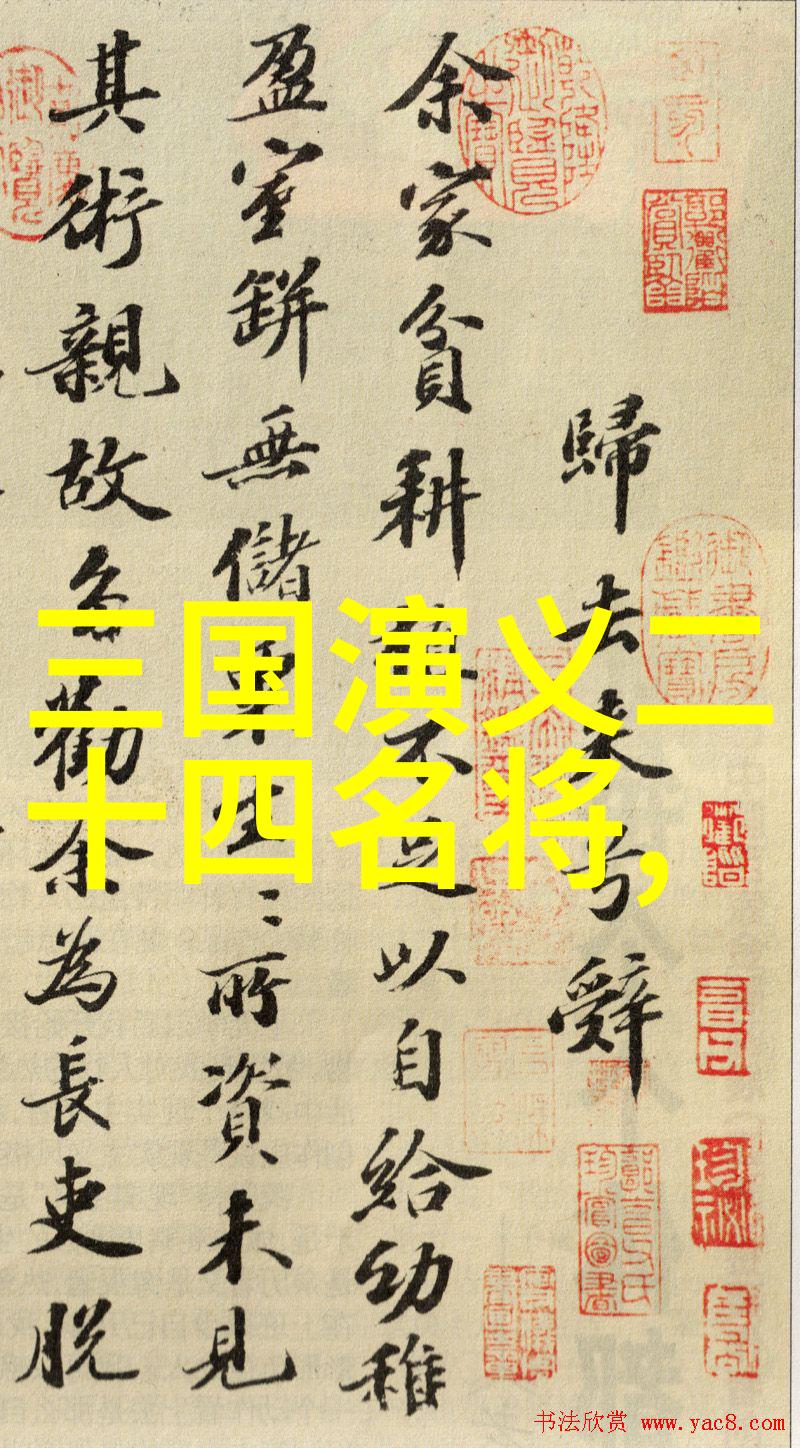 歸去来兮辭
余家貧耕植不足以自給幼稚
盈室缾無儲粟生〻所資未見
其術親故多勸余為長吏脱
三国演义二
十四名将,
书法欣赏 www.yac8.com